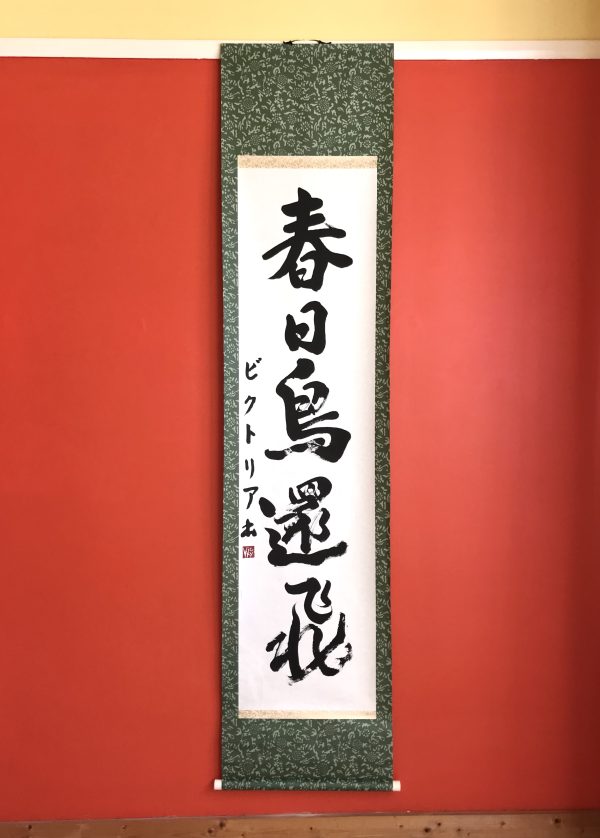 春日鳥還飛
ビクトリア書